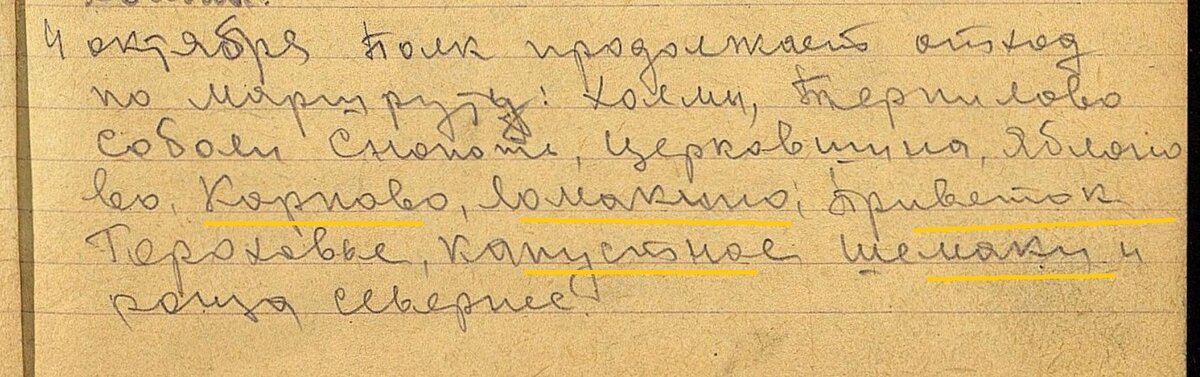 4 октября Полк продолжает отход
по маршруту: Холмы, Терпилово
Соболи Снопоть, Церковщина, Яблоно
во, Карпово, Ломакино, Приветок
Гороховье, Капустное Шемаки и
роща севернее